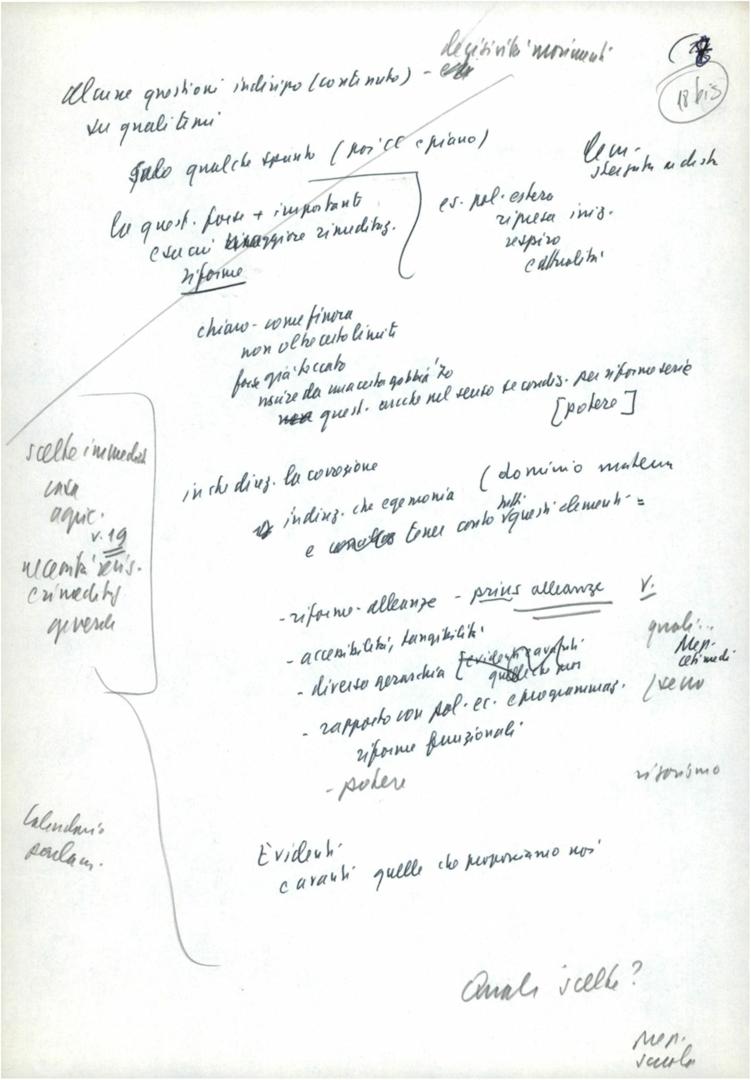 decisività movimenti
18 bis
alcune questioni indirizzo (contenuto) -
su quali temi
Solo qualche spunto (poi CC e piano)
la quest. forse + importante
e su cui maggiore rimeditaz.
riforme
es. pol. estera
ripresa iniz.
respiro
e attualità
chiaro - come finora
non oltre certo limite
forse già toccato
uscire da una certa gabbia '70
quest. anche nel senso se condiz. per riforme serie
[potere]
scelte immediate
casa
agric.
v. 19
necessità revis.
e rimeditaz
generale
in che direz. la correzione
indiriz. che egemonia (dominio
e tener conto tutti questi elementi - =
- riforme - alleanze - prius alleanze v.
- accessibilità, tangibilità
- diversa gerarchia [Evidenti e avanti
quelle che noi
- rapporto con pol. ec. e programmaz.
riforme funzionali
- potere
quali...
Mep.
ceti medi
Calendario
parlam.
Evidenti
e avanti quelle che proponiamo noi
Quali scelte?
Mep.
scuola